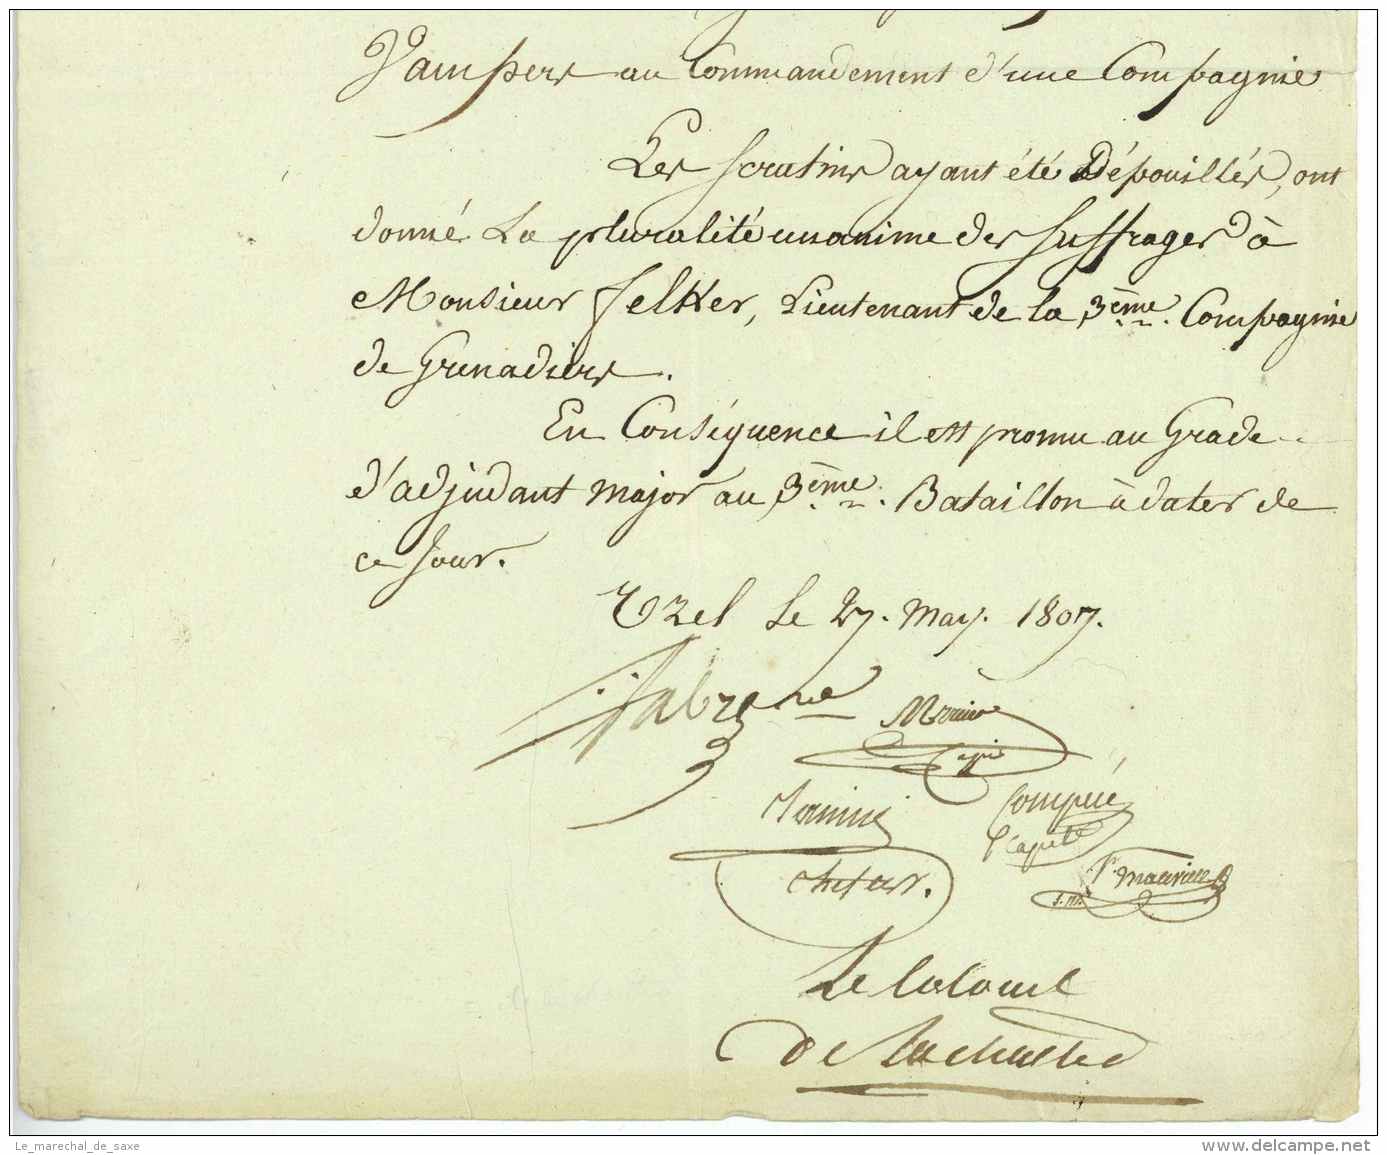 Vampers au Commandement d'une Compagnie
Les scrutins ayant été Dépouillés, ont
donné La pluralité unanime des suffrages à
Monsieur felkter, Lieutenant de la 3ème. Compagnie
de Grenadiers.
En Conséquence il est promu au Grade
d'adjudant major au 3ème. Bataillon à dater de
ce jour.
le 27. May. 1807.
Compère
Capit
St maurice
Le Colonel
De
Le_marechal_de_saxe
www.delcampe.net